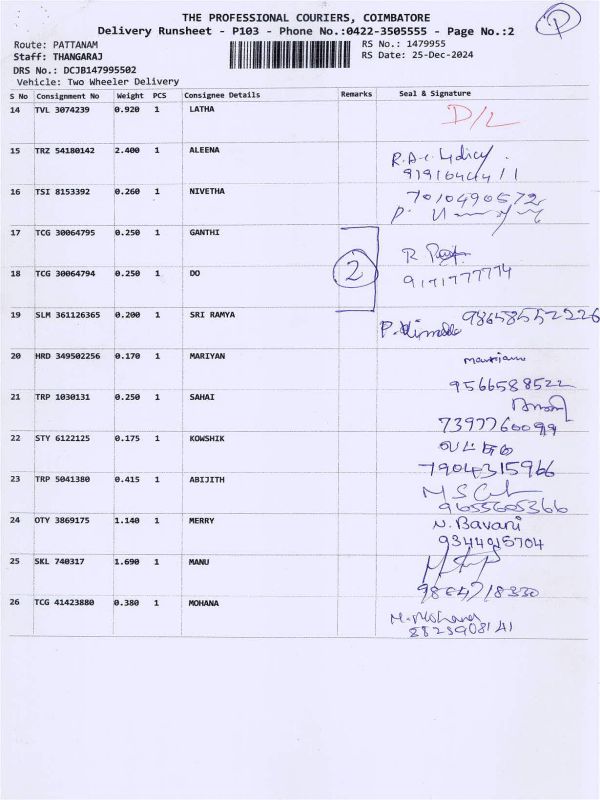 THE PROFESSIONAL COURIERS, COIMBATORE
Delivery Runsheet - P103 - Phone No.:0422-3505555 - Page No.:2
Route: PATTANAM RS No.: 1479955
Staff: THANGARAJ RS Date: 25-Dec-2024
DRS No.: DCJB147995502
Vehicle: Two Wheeler Delivery
S No Consignment No Weight PCS Consignee Details Remarks Seal & Signature
14 TVL 3074239 0.920 1 LATHA D/L
15 TRZ 54180142 2.400 1 ALEENA
16 TSI 8153392 0.260 1 NIVETHA 7010490572
17 TCG 30064795 0.250 1 GANTHI
2
18 TCG 30064794 0.250 1 DO 9171777774
19 SLM 361126365 0.200 1 SRI RAMYA
20 HRD 349502256 0.170 1 MARIYAN
9566588522
21 TRP 1030131 0.250 1 SAHAI
7397760099
22 STY 6122125 0.175 1 KOWSHIK
7904315966
23 TRP 5041380 0.415 1 ABIJITH
9655605366
24 OTY 3869175 1.140 1 MERRY N. Bavani
9344915704
25 SKL 740317 1.690 1 MANU
26 TCG 41423880 0.380 1 MOHANA M. Mohana